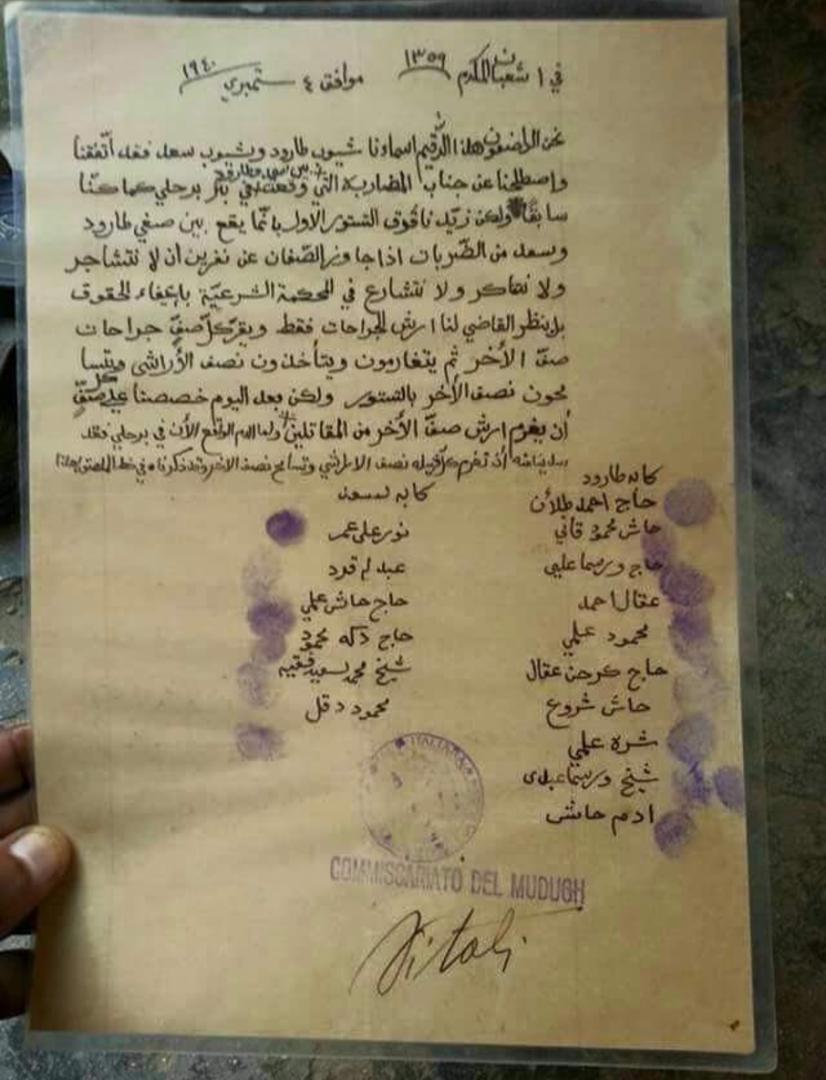 في ١ شعبان المكرم ١٣٥٩ موافق ٤ ستمبري ١٩٤٠
نحن الواضعون هذا الرقيم اسماءنا شيوب طارود وشيوب سعد فقد أتفقنا
وإصطلحنا عن جناب المضاربة التي وقعت في بئر برحلي كما كنّا
سابقًا ولكن زيّدنا فوق التستور الاول بانّما يقع بين صفي طارود
وسعد من الضّربات اذا جاوز الصّفان عن نفرين أن لا نتشاجر
ولا نعاكر ولا نتشارع في المحكمة الشرعيّة بإيفاء الحقوق
بل ينظر القاضي لنا ارش الجراحات فقط ويقرّ كلّ صفٍّ جراحات
صفّ الأخر ثم يتغارمون ويتأخذون نصف الأراشى ويتسا
محون نصف الأخر بالتستور ولكن بعد اليوم خصصنا على كل صفٍّ
أن يغرم ارش صفّ الأخر من المقاتلين ولما الدم الواقع الأن في برحلي فقد
أن تغرم كلّ قبيله نصف الاراشي وتسامح نصف الاخر وقد ذكرناه في خط
كابه طارود
حاج احمد طلأن
حاش محمود قاني
حاج ورسما عليي
عقال احمد
محمود علمي
حاج كرحن عقال
حاش شروع
شره علمي
شيخ ورسما عبدى
ادم حاشى
كابه لسعد
نور على عمر
عبد لم قرد
حاج حاش علمي
حاج دكه محمود
شيخ محمد سعيد فقيه
محمود دقل
ITALIANA
COMMISSARIATO DEL MUDUGH
Vitali